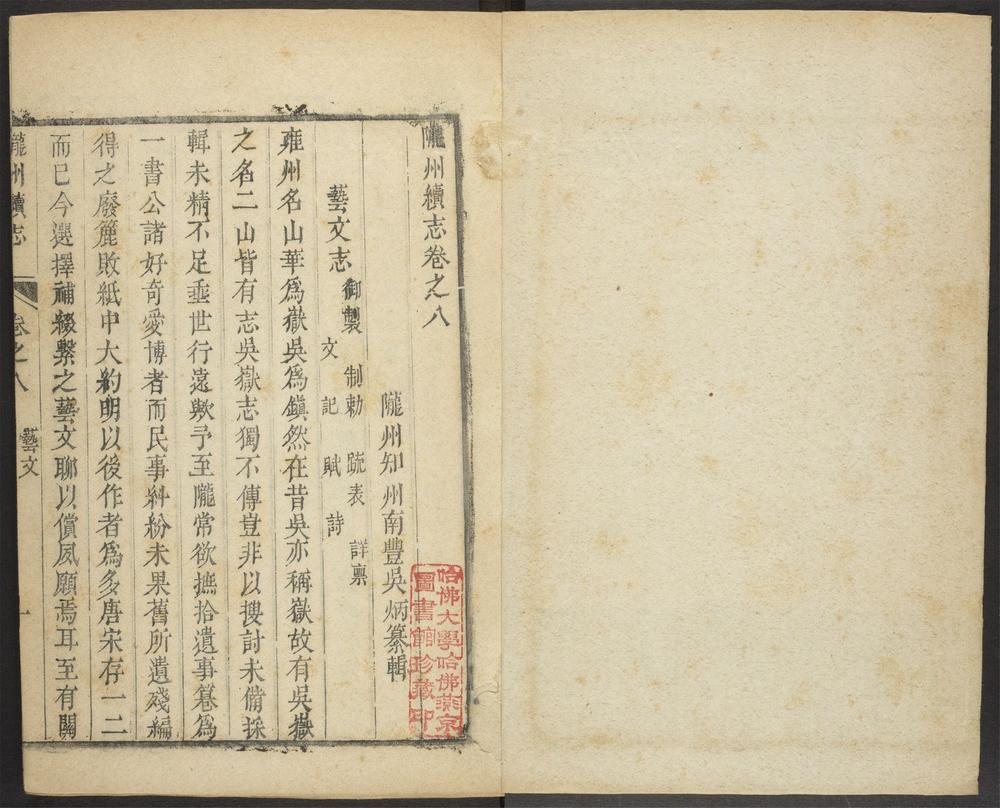 隴州續志卷之八
隴州知州南豐吳炳纂輯
藝文志 御製 制勅 䟽表 詳禀
文 記 賦 詩
雍州名山華爲嶽吳爲鎭然在昔吳亦稱嶽故有吳嶽
之名二山皆有志吳嶽志獨不傳豈非以搜討未備採
輯未精不足垂世行遠歟予至隴常欲摭拾遺事篹爲
一書公諸好奇愛博者而民事糾紛未果舊所遺殘編
得之廢簏敗紙中大約明以後作者爲多唐宋存一二
而已今選擇補綴繫之藝文聊以償夙願焉耳至有關
隴州續志 卷之八 藝文 一
哈佛大學哈佛燕京
圖書館珍藏印